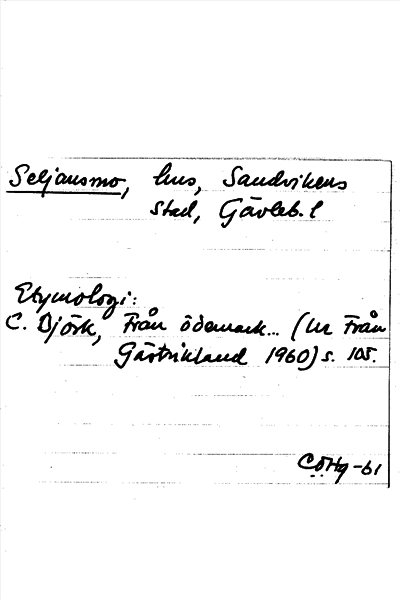 Seljansmo, hus, Sandvikens
stad, Gävleb. l
Etymologi:
C. Björk, Från ödemark... (Ur Från
Gästrikland 1960) s. 105.
CÖHg -61